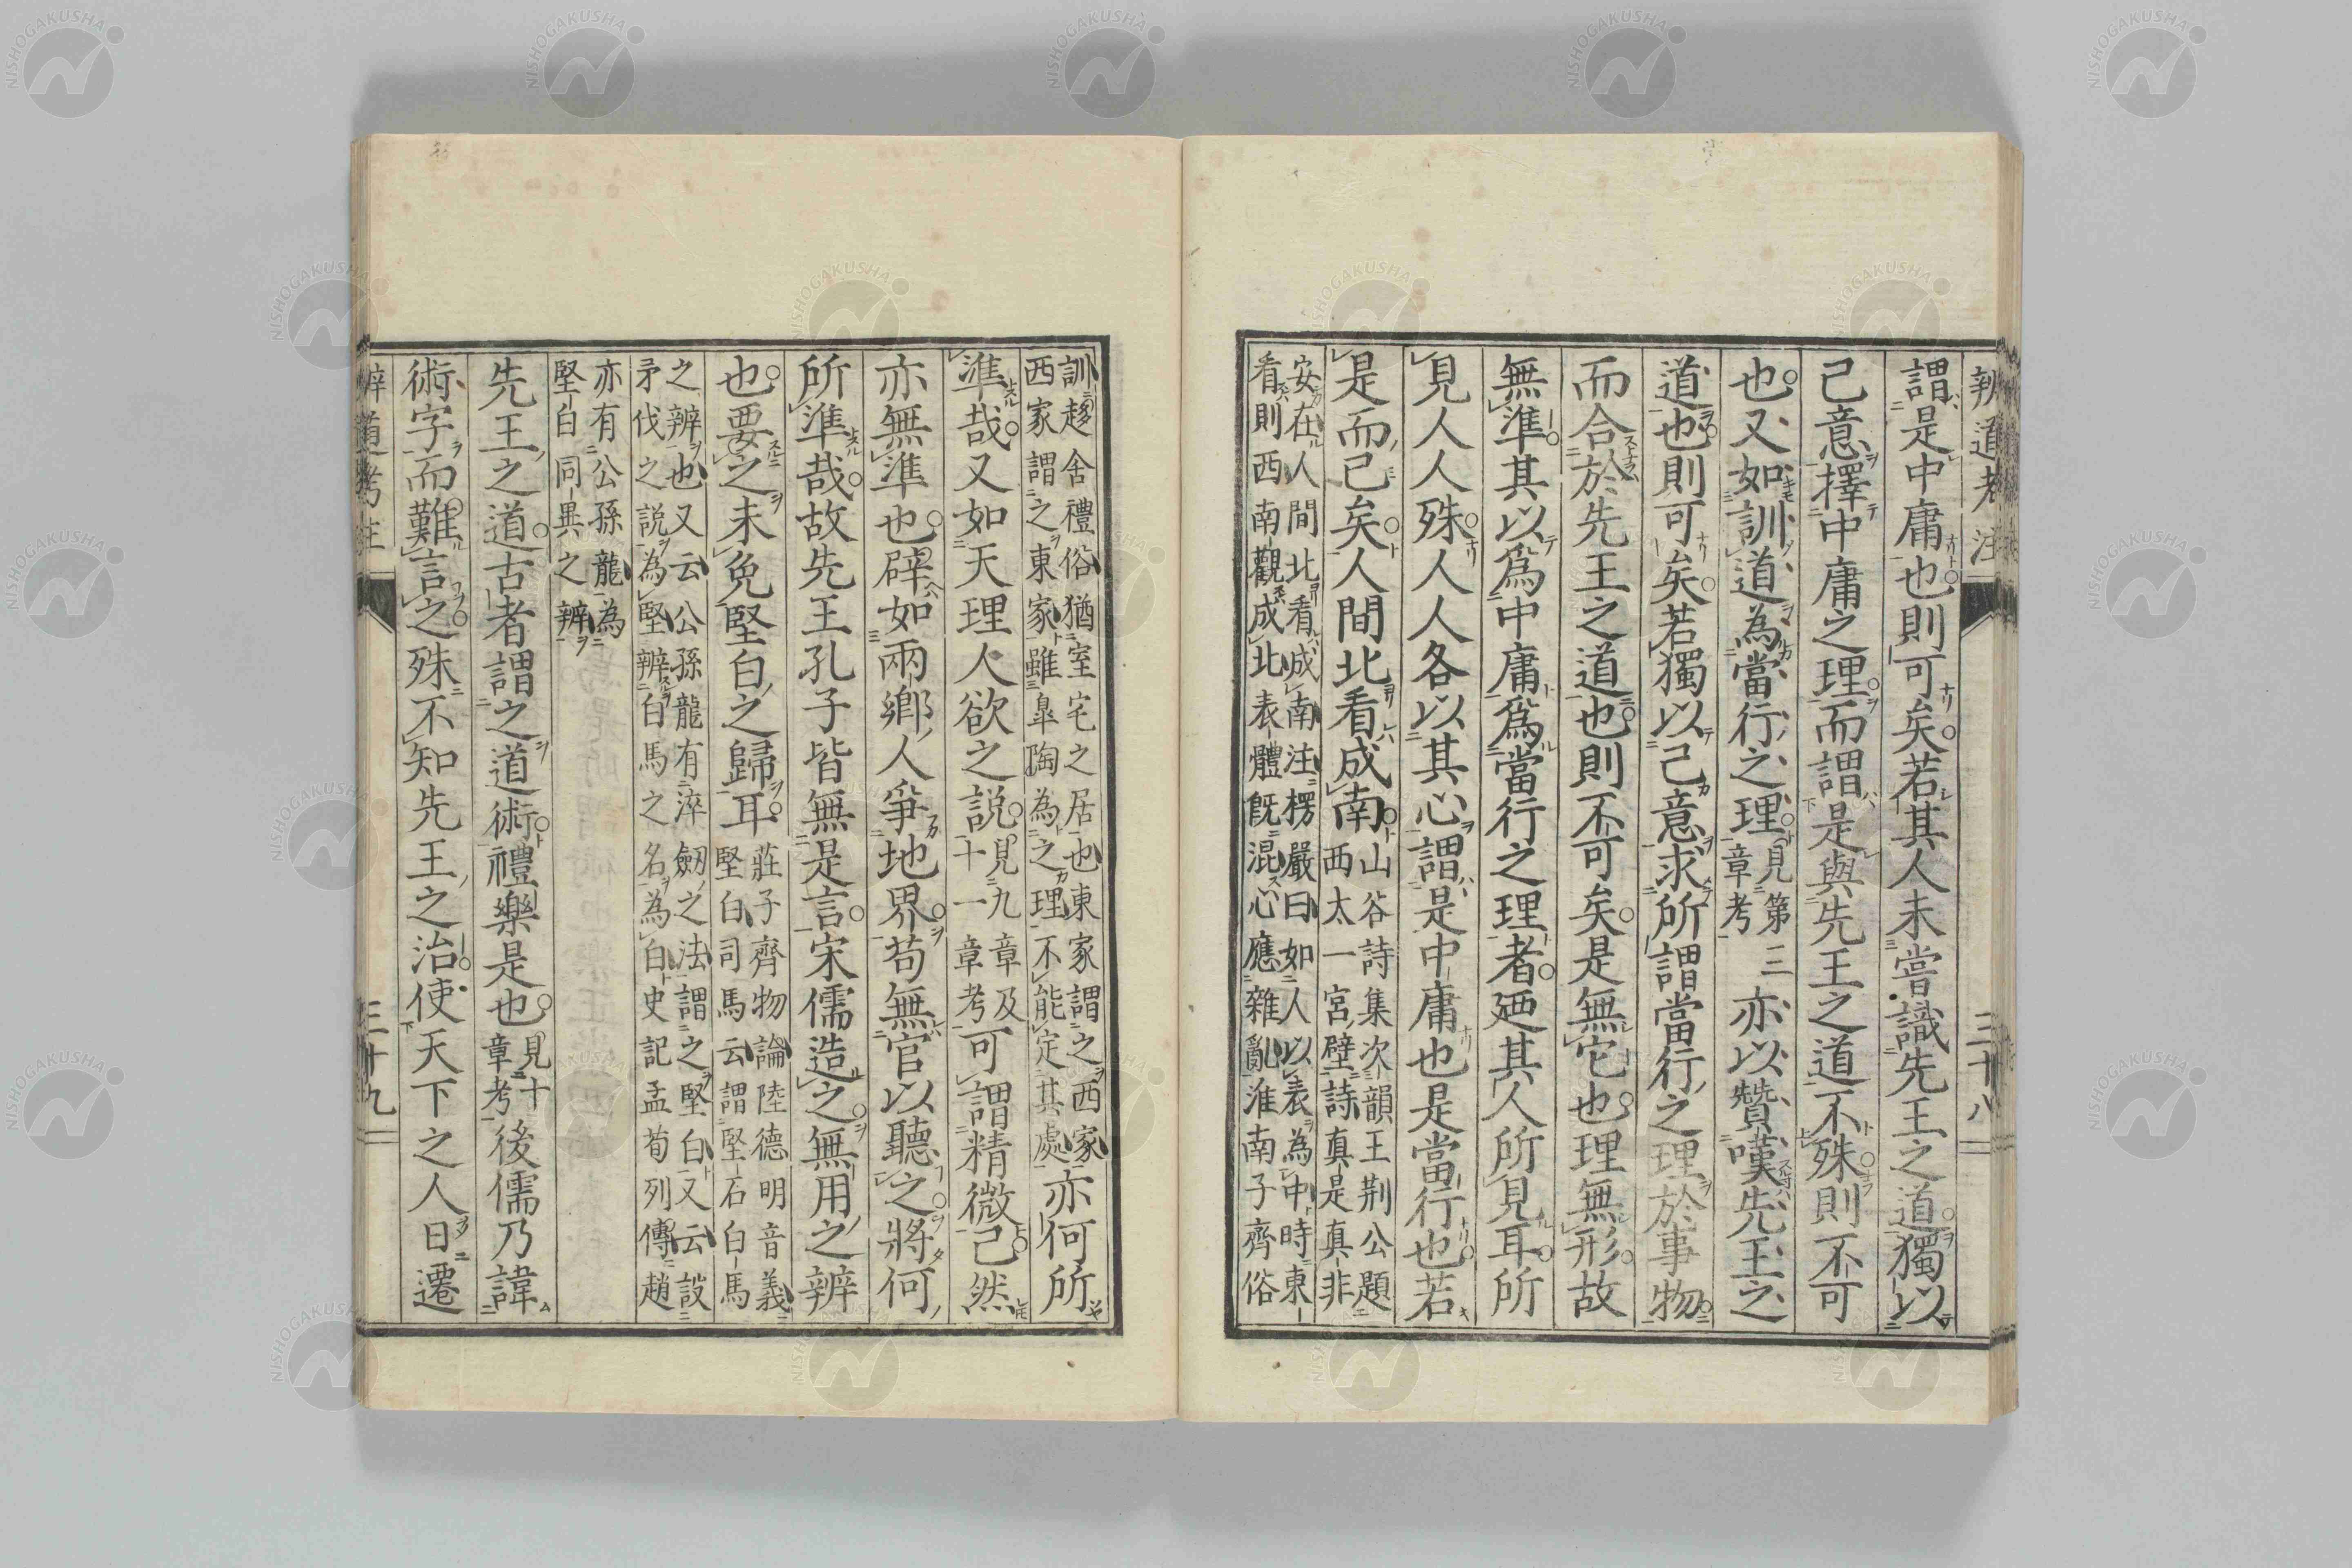 辨道考注
三十八
謂是中庸也則可矣若其人未嘗識先王之道獨以
己意擇中庸之理而謂是與先王之道不殊則不可
也又如訓道為當行之理見第三章考亦以贊嘆先王之
道也則可矣若獨以己意求所謂當行之理於事物
而合於先王之道也則不可矣是無它也理無形故
無準其以爲中庸爲當行之理者廼其人所見耳所
見人人殊人人各以其心謂是中庸也是當行也若
是而已矣人間北看成南山谷詩集次韻王荆公題西太一宮壁詩真是真非
安在人間北看成南注楞嚴曰如人以表為中時東
看則西南觀成北表體既混心應雜亂淮南子齊俗
訓趍舍禮俗猶室宅之居也東家謂之西家
西家謂之東家雖皐陶為之理不能定其處亦何所
準哉又如天理人欲之說見九章及十一章考可謂精微已然
亦無準也辟如兩鄉人爭地界苟無官以聽之將何
所準哉故先王孔子皆無是言宋儒造之無用之辨
也要之未免堅白之歸耳莊子齊物論陸德明音義堅白司馬云謂堅石白馬
之辨也又云公孫龍有淬劒之法謂之堅白又云設
矛伐之說為堅辨白馬之名為白史記孟荀列傳趙
亦有公孫龍為
堅白同異之辨
先王之道古者謂之道術禮樂是也見十章考後儒乃諱
術字而難言之殊不知先王之治使天下之人日遷
辨道考注
三十九
NISHOGAKUSHA